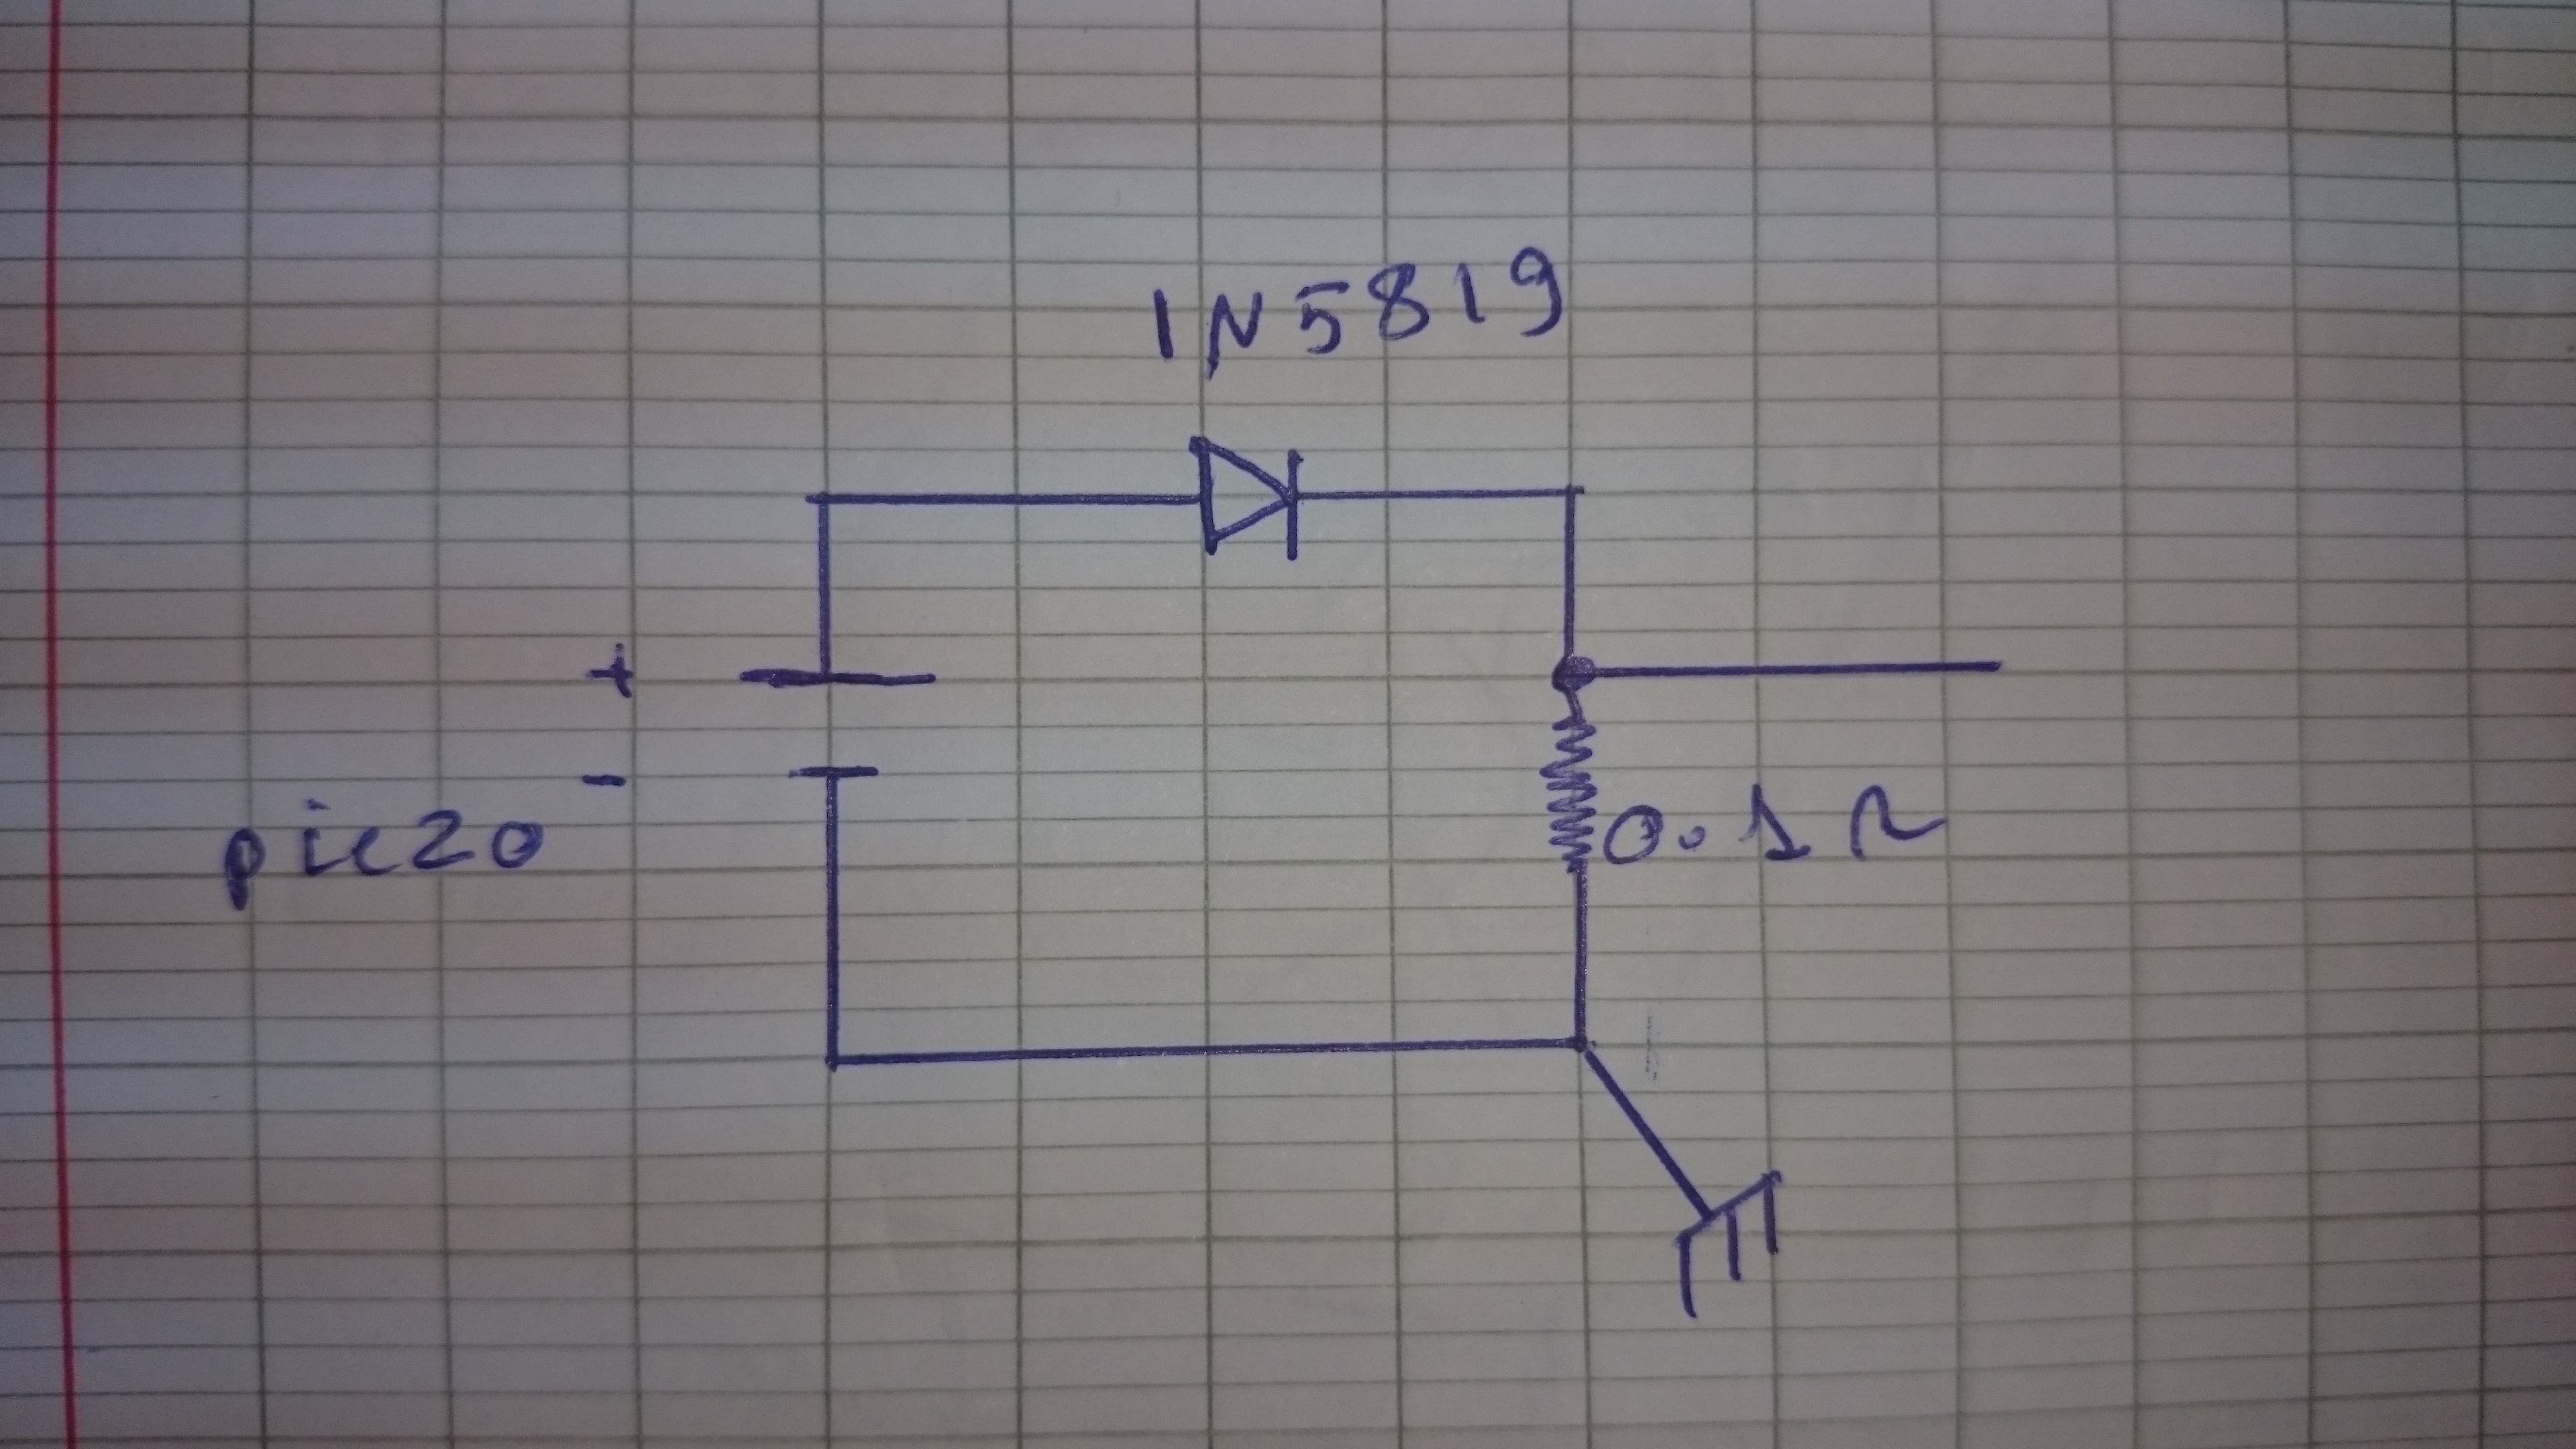 1N5819
+
-
piezo
0.1Ω